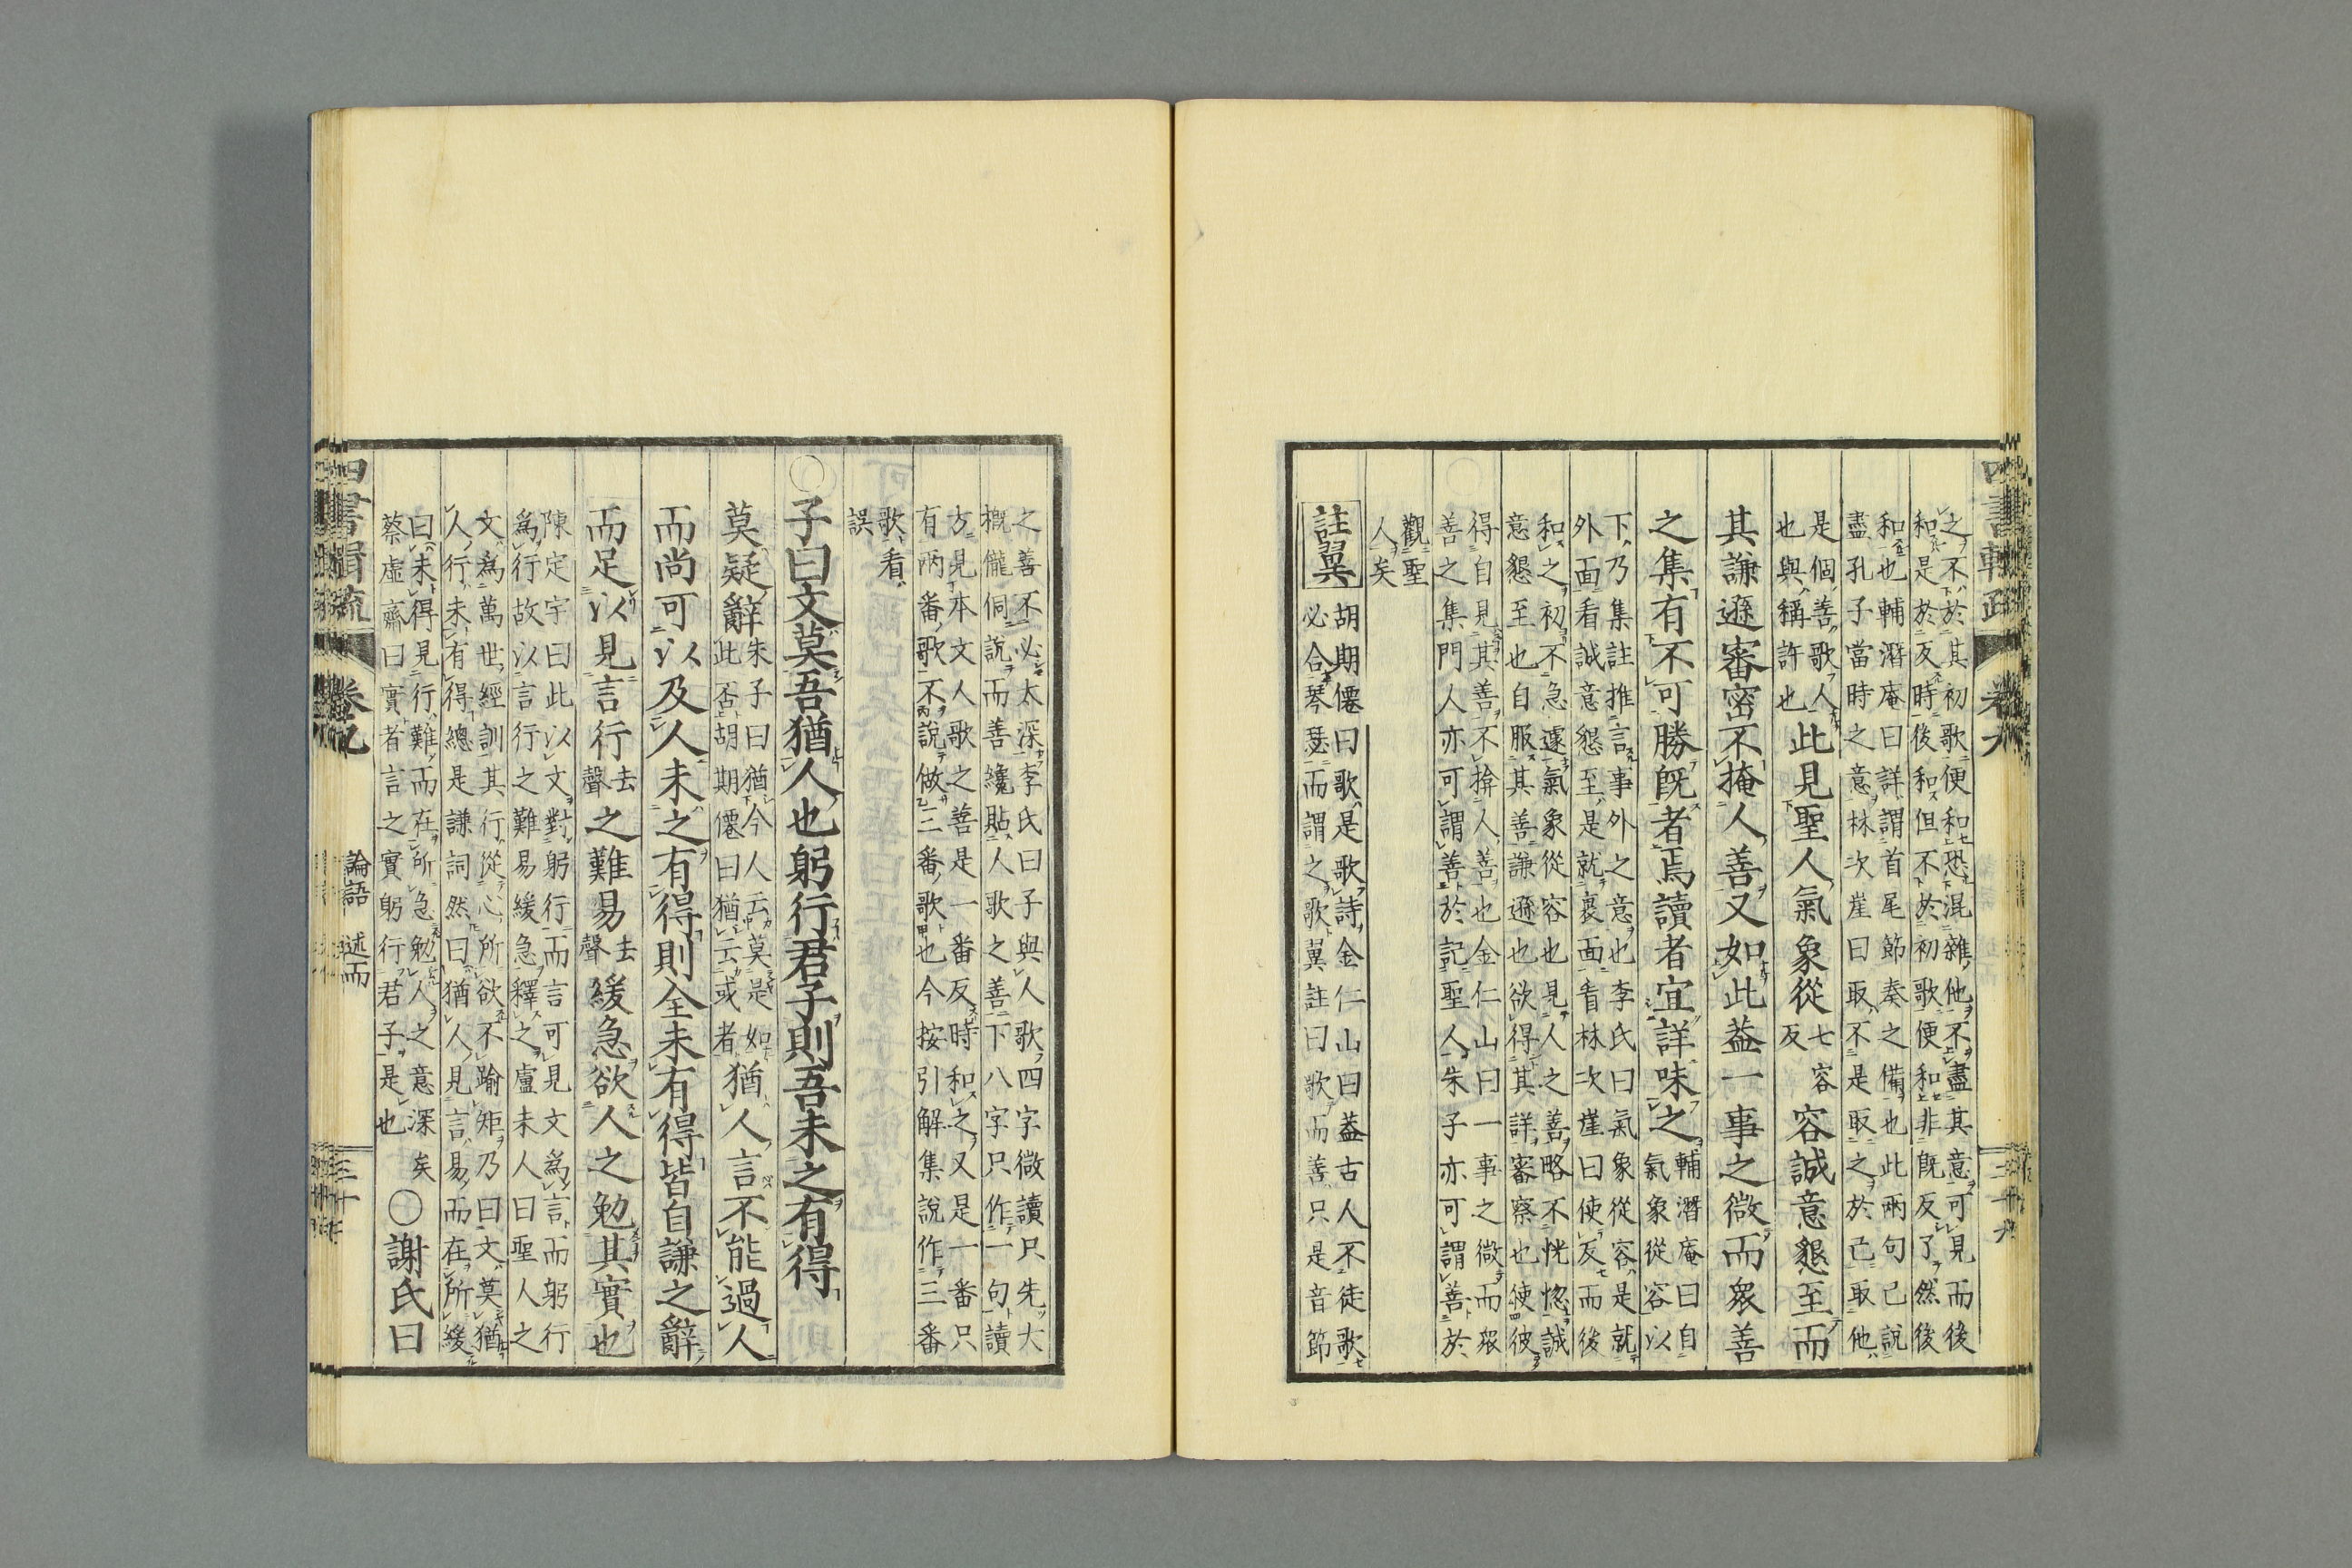 之不於其初歌便和恐混雜他不盡其意可見而後
和是於反時後和但不於初歌便和非既反了然後
和也輔潛庵曰詳謂首尾節奏之備也此兩句已說
盡孔子當時之意林次崖曰取不是取之於己取他
是個善歌人
也與稱許也
此見聖人氣象從
七容
反
容誠意懇至而
其謙遜審密不掩人善又如此蓋一事之微而衆善
之集有不可勝既者焉讀者宜詳味之
輔潛庵曰自
氣象從容以
下乃集註推言事外之意也李氏曰氣象從容是就
外面看誠意懇至是就裏面看林次崖曰使反而後
和之初不急遽氣象從容也見人之善略不恍惚誠
意懇至也自服其善謙遜也欲得其詳審察也使彼
得自見其善不揜人善也金仁山曰一事之微而衆
善之集門人亦可謂善於記聖人朱子亦可謂善於
觀聖
人矣
註翼
胡期僊曰歌是歌詩金仁山曰蓋古人不徒歌
必合琴瑟而謂之歌翼註曰歌而善只是音節
之善不必太深李氏曰子與人歌四字微讀只先大
概儱侗說而善纔貼人歌之善下八字只作一句讀
方見本文人歌之善是一番反時和之又是一番只
有兩番歌不說做三番歌也今按引解集說作三番
歌看
誤
子曰文莫吾猶人也躬行君子則吾未之有得
莫疑辭
朱子曰猶今人云莫是如
此否胡期僊曰猶云或者
猶人言不能過人
而尚可以及人未之有得則全未有得皆自謙之辭
而足以見言行
去
聲
之難易
去
聲
緩急欲人之勉其實也
陳定宇曰此以文對躬行而言可見文爲言而躬行
爲行故以言行之難易緩急釋之盧未人曰聖人之
文爲萬世經訓其行從心所欲不踰矩乃曰文莫猶
人行未有得總是謙詞然曰猶人見言易而在所緩
曰未得見行難而在所急勉人之意深矣
蔡虛齋曰實者言之實躬行君子是也
○謝氏曰
卷九
論語
述而
三十